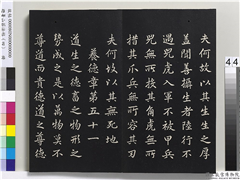 夫何故以其生生之厚
蓋聞善攝生者陸行不
遇兕虎入軍不被甲兵
兕無所投其角虎無所
措其爪兵無所容其刃
夫何故以其無死地
養德章第五十一
道生之德畜之物形之
勢成之是以萬物莫不
尊道而貴德道之尊德
44